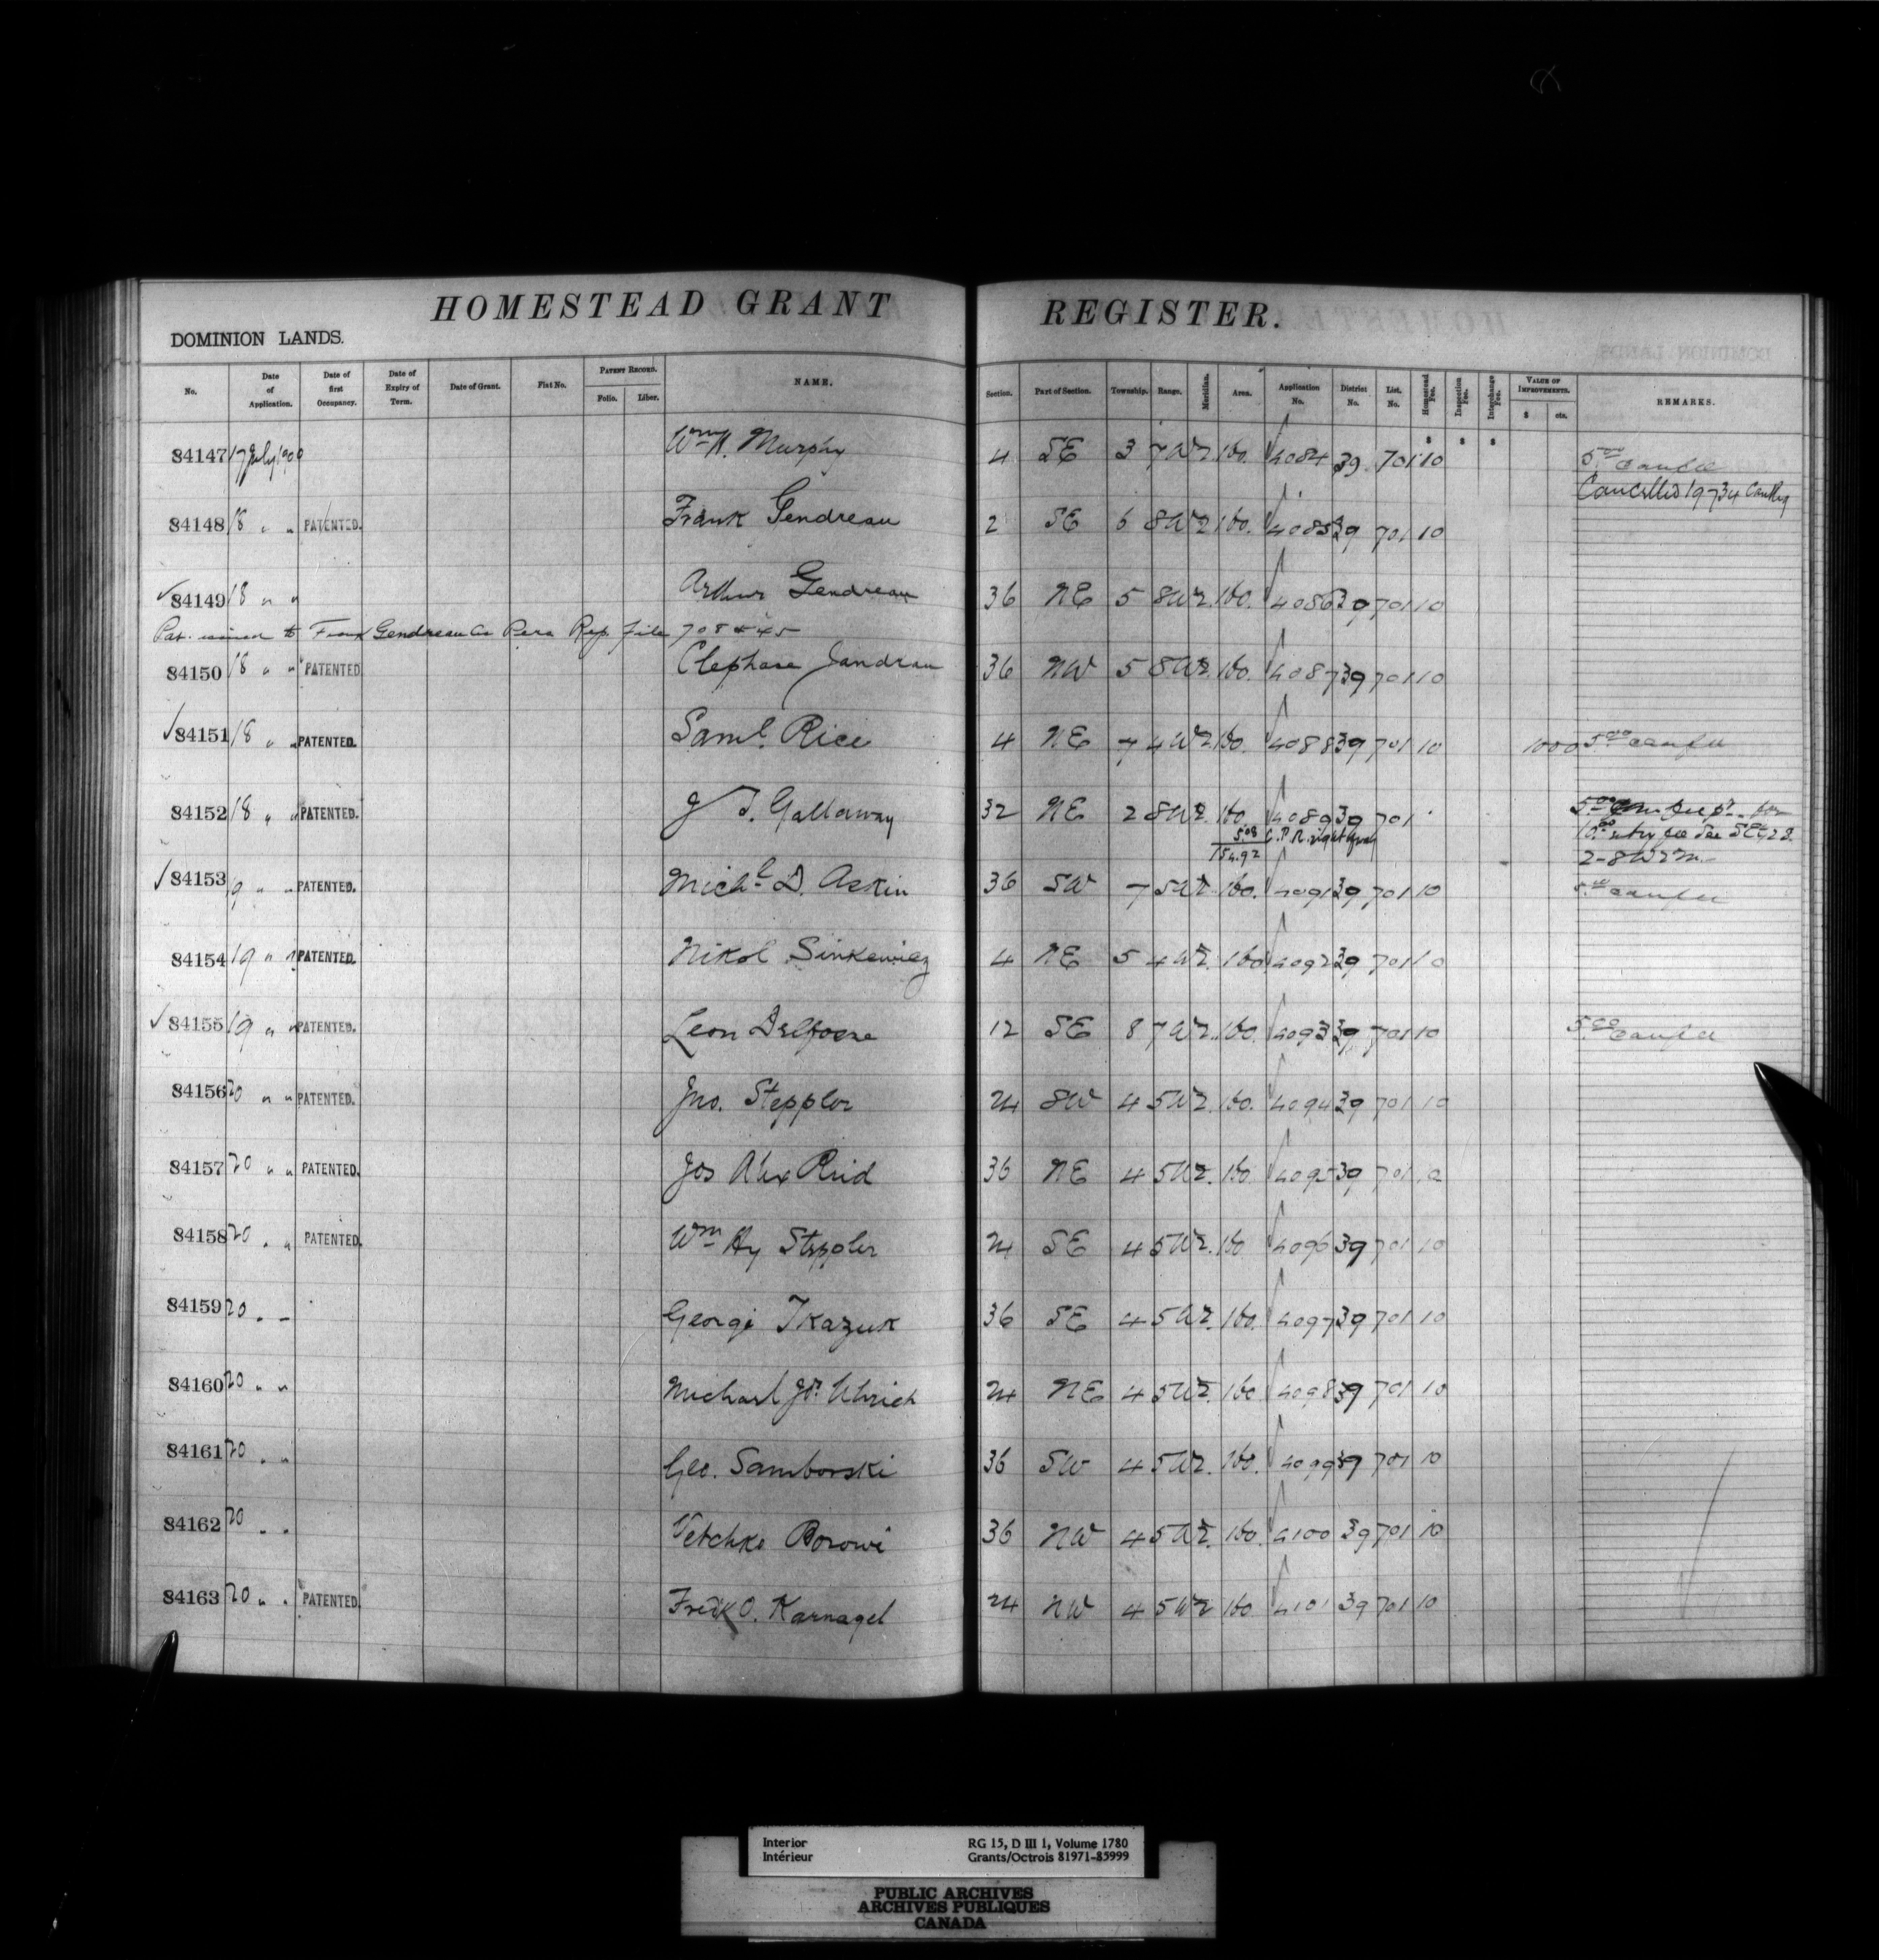 HOMESTEAD GRANT REGISTER.
DOMINION LANDS.
No. Date of Application. Date of first Occupancy. Date of Expiry of Term. Date of Grant. Fiat No. PATENT RECORD. Folio. Liber. NAME. Section. Part of Section. Township. Range. Meridian. Area. Application No. District No. List. No. Homestead Fee. Inspection Fee. Interchange Fee. VALUE OF IMPROVEMENTS. $ cts. REMARKS.
84147 17 July 1900 Wm H. Murphy 4 SE 3 7 W2 160. 4084 39 701 10 5.00 can fee
Cancelled 19-7-34
84148 18 " " PATENTED. Frank Gendreau 2 SE 6 8 W2 160. 4085 39 701 10
84149 18 " " Arthur Gendreau 36 NE 5 8 W2. 160. 4086 39 701 10
Pat. issued to Frank Gendreau as Pers Rep. file 708845
84150 18 " " PATENTED Clephase Jandrau 36 NW 5 8 W2. 160. 4087 39 701 10
84151 18 " " PATENTED. Saml. Rice 4 NE 7 4 W2 160. 4088 39 701 10 1000 5.00 can fee
84152 18 " " PATENTED. J T. Gallaway 32 NE 2 8 W2. 160. 4089 39 701
5.08 C.P.R. right of way
154.92
10.00 entry fee See SE
2-8 W2M.
84153 19 " " PATENTED. Michl D. Askin 36 SW 7 5 W2. 160. 4091 39 701 10 5.00 can fee
84154 19 " " PATENTED. Nikol Sinkewicz 4 NE 5 4 W2. 160 4092 39 701 10
84155 19 " " PATENTED. Leon 12 SE 8 7 W2. 160. 4093 39 701 10 5.00 can fee
84156 20 " " PATENTED. Jno. Steppler 24 SW 4 5 W2. 160. 4094 39 701 10
84157 20 " " PATENTED. Jos Alex Reid 36 NE 4 5 W2. 160. 4095 39 701 10
84158 20 " " PATENTED. Wm Hy Steppler 24 SE 4 5 W2. 160 4096 39 701 10
84159 20 " " George Tkazuk 36 SE 4 5 W2. 160. 4097 39 701 10
84160 20 " " Michael Jos. Uhrich 24 NE 4 5 W2. 160 4098 39 701 10
84161 20 " " Geo. Samborski 36 SW 4 5 W2. 160. 4099 39 701 10
84162 20 " " Borowi 36 NW 4 5 W2. 160. 4100 39 701 10
84163 20 " " PATENTED. Fredk O. Karnagel 24 NW 4 5 W2 160 4101 39 701 10
Interior RG 15, D III 1, Volume 1780
Intérieur Grants/Octrois 81971-85999
PUBLIC ARCHIVES
ARCHIVES PUBLIQUES
CANADA